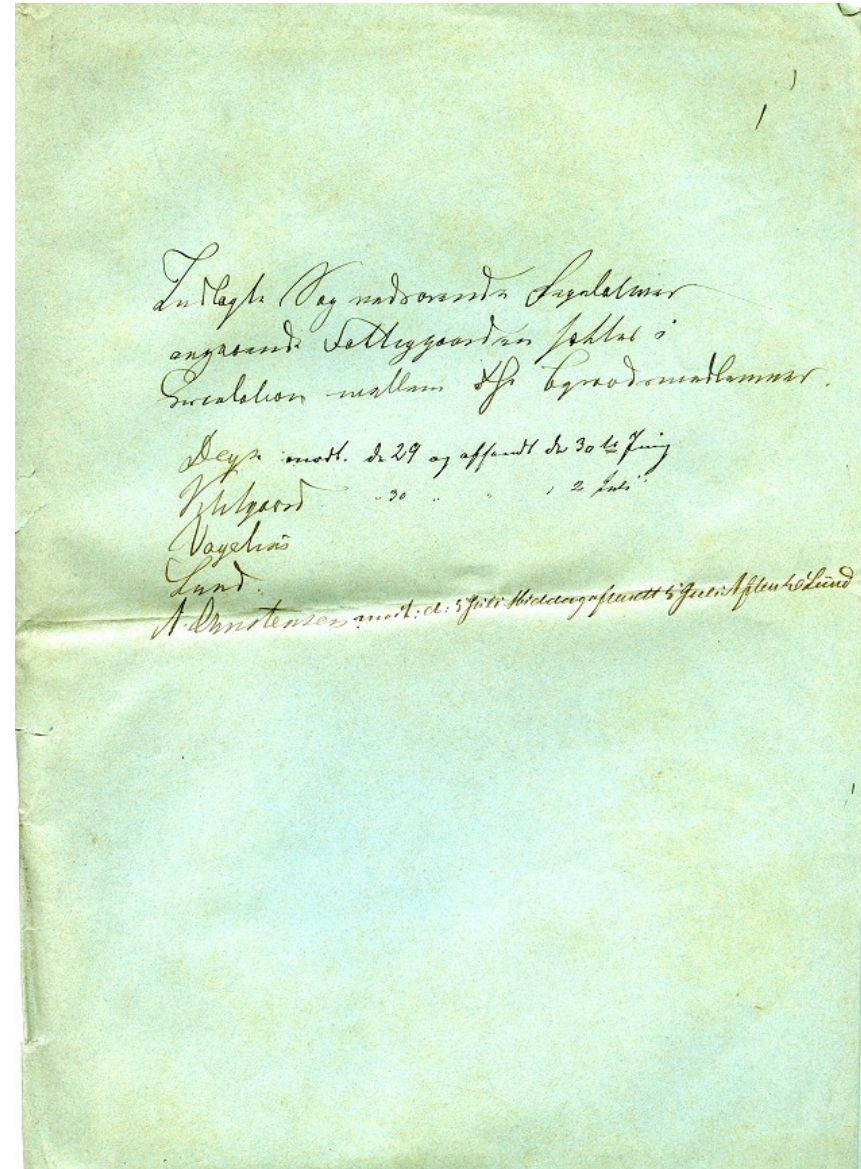 Indlagte Sag vedrørende Regulativer
angaaende Fattiggaarden sættes i
Circulation mellem Hr. Byraadsmedlemmer.
Deg modt. d. 29 og afsendt d. 30te Juny
" 30 " " , 2 Juli
Vogelius
Lund.
A. Christensen modt: d: 5 Juli Middag afsendt 5 Juli Aften til Lund